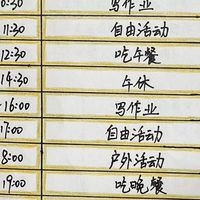 0:30 写作业
11:30 自由活动
12:30 吃午餐
14:30 午休
-16:00 写作业
17:00 自由活动
8:00 户外活动
19:00 吃晚餐